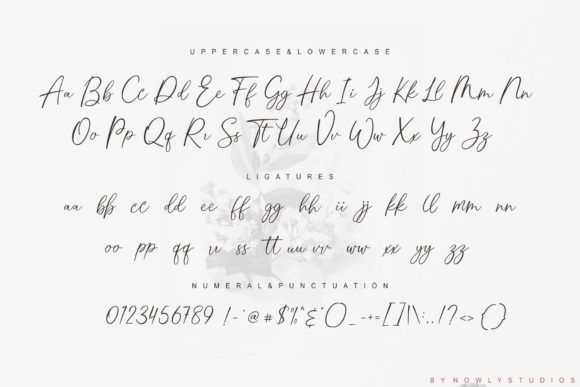 UPPERCASE&LOWERCASE
Aa Bb Cc Dd Ee Ff Gg Hh Ii Jj Kk Ll Mm Nn
Oo Pp Qq Rr Ss Tt Uu Vv Ww Xx Yy Zz
LIGATURES
aa bb cc dd ee ff gg hh ii jj kk ll mm nn
oo pp qq rr ss tt uu vv ww xx yy zz
NUMERAL&PUNCTUATION
0123456789 !-`@#$%^&*()_-+=[]|\:..!?<>{}
BYNOWLYSTUDIOS